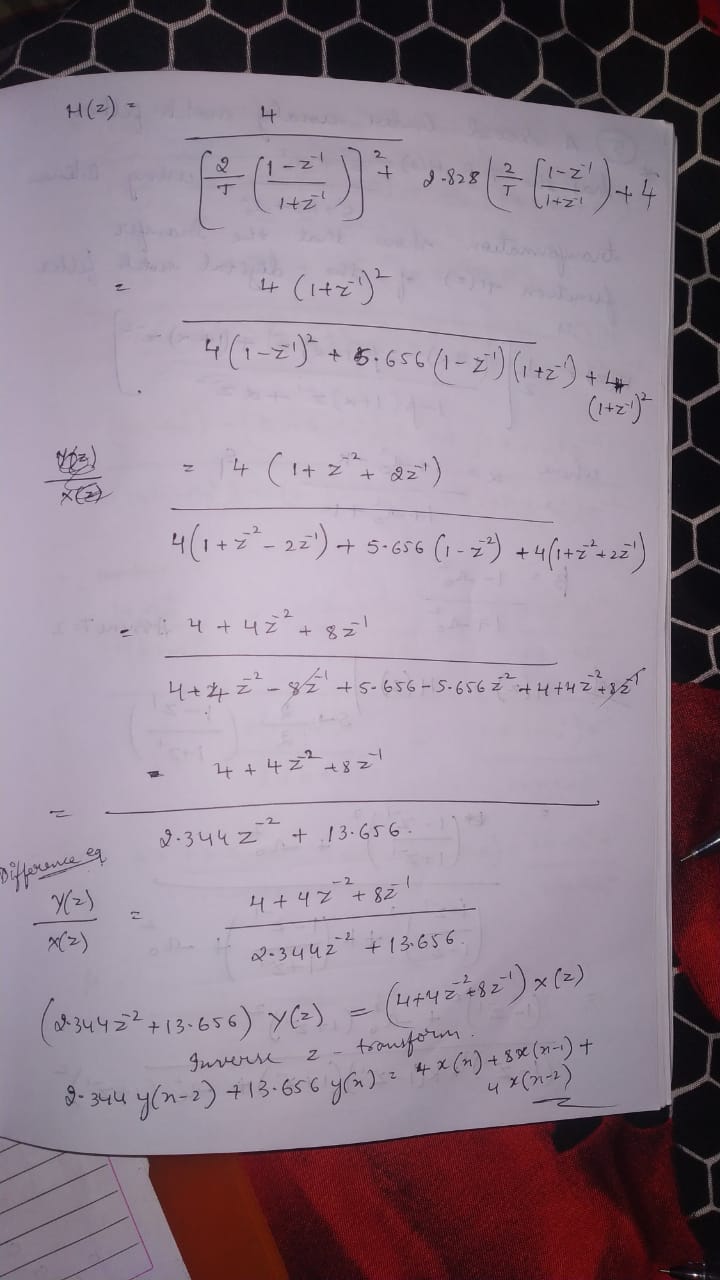 H(z) = 4
[2/T (1-z⁻¹/1+z⁻¹)]² + 2.828 (2/T (1-z⁻¹/1+z⁻¹) + 4
= 4 (1+z⁻¹)²
4(1-z⁻¹)² + 5.656 (1-z⁻¹) (1+z⁻¹) + 4
(1+z⁻¹)²
= 4 (1+z⁻² + 2z⁻¹)
4(1+z⁻² - 2z⁻¹) + 5.656 (1-z⁻²) + 4(1+z⁻²+2z⁻¹)
= 4 + 4z⁻² + 8z⁻¹
4+4z⁻² - 8z⁻¹ + 5.656 - 5.656z⁻² + 4+4z⁻²+8z⁻¹
= 4 + 4z⁻² + 8z⁻¹
=
2.344z⁻² + 13.656.
Difference eq
Y(z)/X(z) = 4+4z⁻²+8z⁻¹
2.344z⁻² + 13.656.
(2.344z⁻²+13.656) Y(z) = (4+4z⁻²+8z⁻¹) x(z)
Inverse z-transform.
2.344 y(n-2) + 13.656 y(n) = 4x(n) + 8x(n-1) +
4x(n-2)